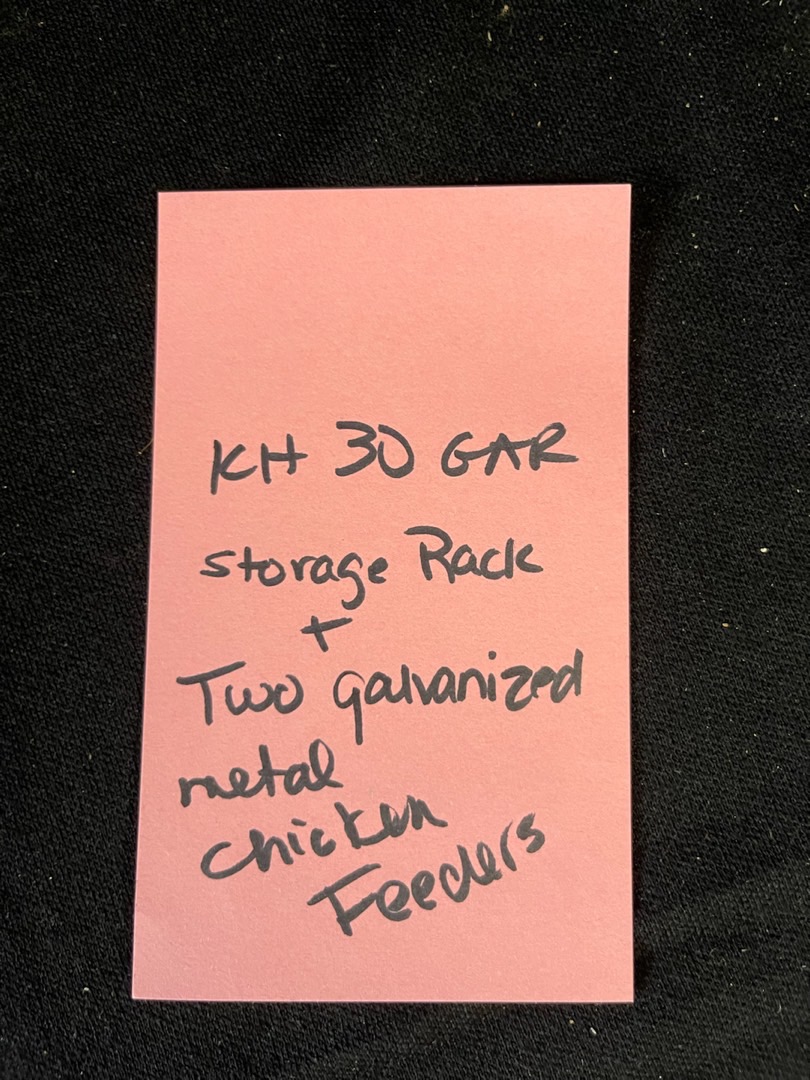 KH 30 GAR
Storage Rack
+
Two galvanized
metal
chicken
Feeders